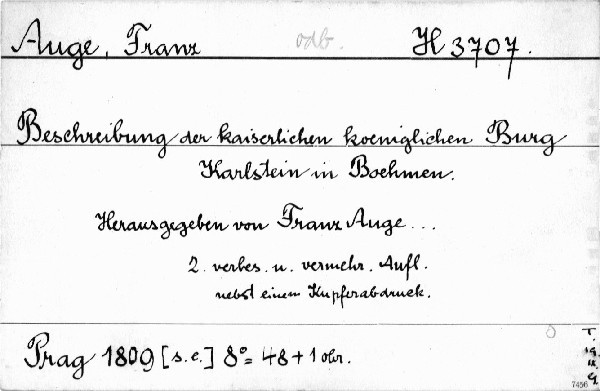 Auge, Franz odb. H 3707.
Beschreibung der kaiserlichen koeniglichen Burg
Karlstein in Boehmen.
Herausgegeben von Franz Auge...
2. verbes. u. vermehr. Aufl.
nebst einem Kupferabdruck.
Prag 1809 [s.e.] 8°= 48+1 obr.
T.
7456